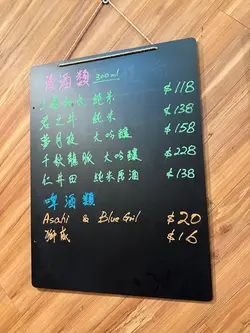 清酒類 300ml
純米 $118
君之井 純米 $138
夢月夜 大吟釀 $158
千秋龍脈 大吟釀 $228
仁井田 純米原酒 $138
啤酒類
Asahi & Blue Girl $20
獅威 $16